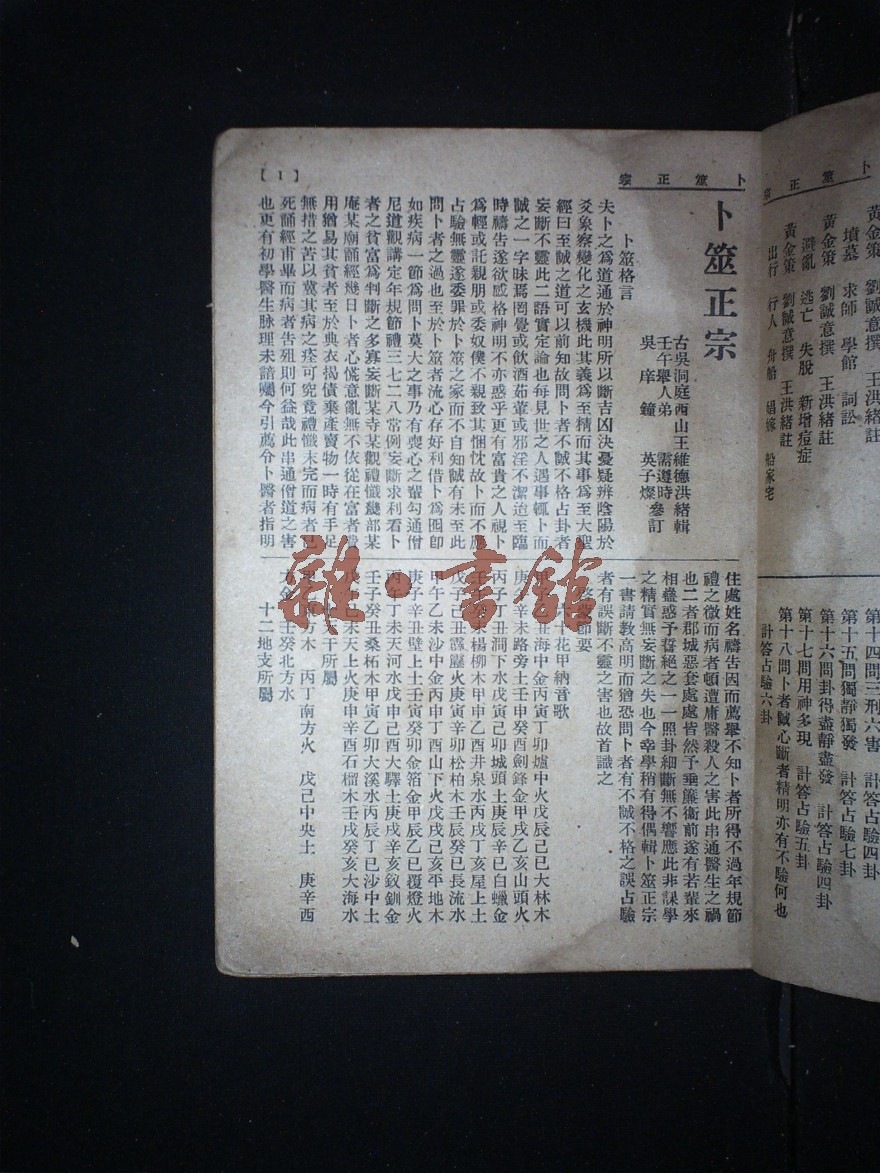 卜筮正宗
【1】
卜筮正宗
古吳洞庭西山王維德洪緒輯
壬午舉人弟 需遵時
吳庠鐘 英子燦
參訂
卜筮格言
夫卜之為道通於神明所以斷吉凶決憂疑辨陰陽於
爻象察變化之玄機此其義為至精而其事為至大聖
經曰至誠之道可以前知故問卜者不誠不格占卦者
妄斷不靈此二語實定論也每見世之人遇事輒卜而
誠之一字昧焉罔覺或飲酒茹葷或邪淫不潔迨至臨
時禱告遂欲感格神明不亦惑乎更有富貴之人視卜
為輕或託親朋或委奴僕不親致其悃忱故卜而不應
占驗無靈遂委罪於卜筮之家而不自知誠有未至此
問卜者之過也至於卜筮者流心存好利借卜為囮卽
如疾病一節為問卜莫大之事乃有喪心之輩勾通僧
尼道觀講定年規節禮三七二八當例妄斷求利看卜
者之貧富為判斷之多寡妄斷某寺某觀禮懺幾部某
庵某廟誦經幾日卜者心慌意亂無不依從在富者費
用猶易其貧者至於典衣揭債棄產賣物一時有手足
無措之苦以冀其病之痊可究竟禮懺未完而病者已
死誦經甫畢而病者告殂則何益哉此串通僧道之害
也更有初學醫生脉理未諳囑令引薦令卜醫者指明
住處姓名禱告因而薦舉不知卜者所得不過年規節
禮之微而病者頓遭庸醫殺人之害此串通醫生之禍
也二者郡城惡套處處皆然予垂簾衞前遂有若輩來
相蠱惑予誓絕之一一照卦細斷無不響應此非課學
之精實無妄斷之失也今幸學稍有得偶輯卜筮正宗
一書請敎高明而猶恐問卜者有不誠不格之誤占驗
者有誤斷不靈之害也故首識之
節要
花甲納音歌
丑海中金丙寅丁卯爐中火戊辰己巳大林木
庚午辛未路旁土壬申癸酉劍鋒金甲戌乙亥山頭火
丙子丁丑澗下水戊寅己卯城頭土庚辰辛巳白蠟金
楊柳木甲申乙酉井泉水丙戌丁亥屋上土
戊子己丑霹靂火庚寅辛卯松柏木壬辰癸巳長流水
甲午乙未沙中金丙申丁酉山下火戊戌己亥平地木
庚子辛丑壁上土壬寅癸卯金箔金甲辰乙巳覆燈火
丙午丁未天河水戊申己酉大驛土庚戌辛亥釵釧金
壬子癸丑桑柘木甲寅乙卯大溪水丙辰丁巳沙中土
戊午己未天上火庚申辛酉石榴木壬戌癸亥大海水
干所屬
甲乙東方木 丙丁南方火 戊己中央土 庚辛西
方金 壬癸北方水
十二地支所屬
卜筮正宗
黃金策 劉誠意撰 王洪緒註
墳墓 求師 學館 詞訟
黃金策 劉誠意撰 王洪緒註
避亂 逃亡 失脫 新增痘症
黃金策 劉誠意撰 王洪緒註
出行 行人 舟船 娼嫁 船家宅
第十四問三刑六害 計答占驗四卦
第十五問獨靜獨發 計答占驗七卦
第十六問卦得盡靜盡發 計答占驗四卦
第十七問用神多現 計答占驗五卦
第十八問卜者誠心斷者精明亦有不驗何也
計答占驗六卦
雜·書館